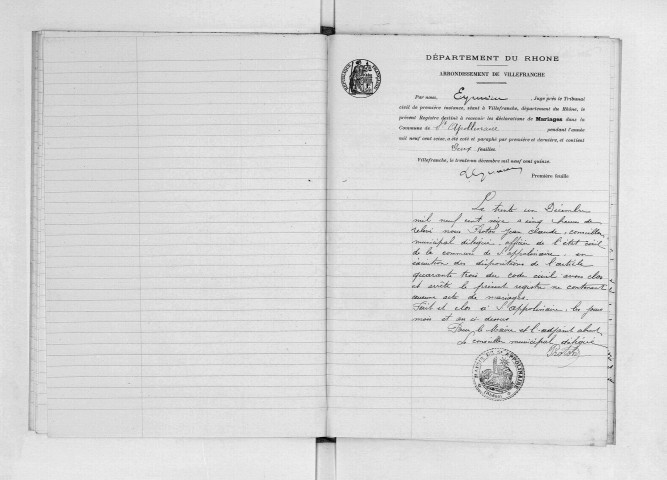 DÉPARTEMENT DU RHONE
ARRONDISSEMENT DE VILLEFRANCHE
Par nous, Juge près le Tribunal
civil de première instance, séant à Villefranche, département du Rhône, le
présent Registre destiné à recevoir les déclarations de Mariages dans la
Commune de St Apollinaire pendant l'année
mil neuf cent seize, a été coté et paraphé par première et dernière, et contient
Deux feuilles.
Villefranche, le trente-un décembre mil neuf cent quinze.
Première feuille
Le trente un Décembre
mil neuf cent seize a cinq heures du
nous Proton Jean Claude, conseiller
municipal délégué officier de l'état civil
de la commune de St appolinaire en
exécution des dispositions de l'article
quarante trois du code civil avons clos
et arrêté le présent registre ne contenant
aucun acte de mariages.
Fait et clos à St appolinaire, les jour
mois et an ci dessus
Pour le Maire et l'adjoint
Le conseiller municipal délégué
Proton